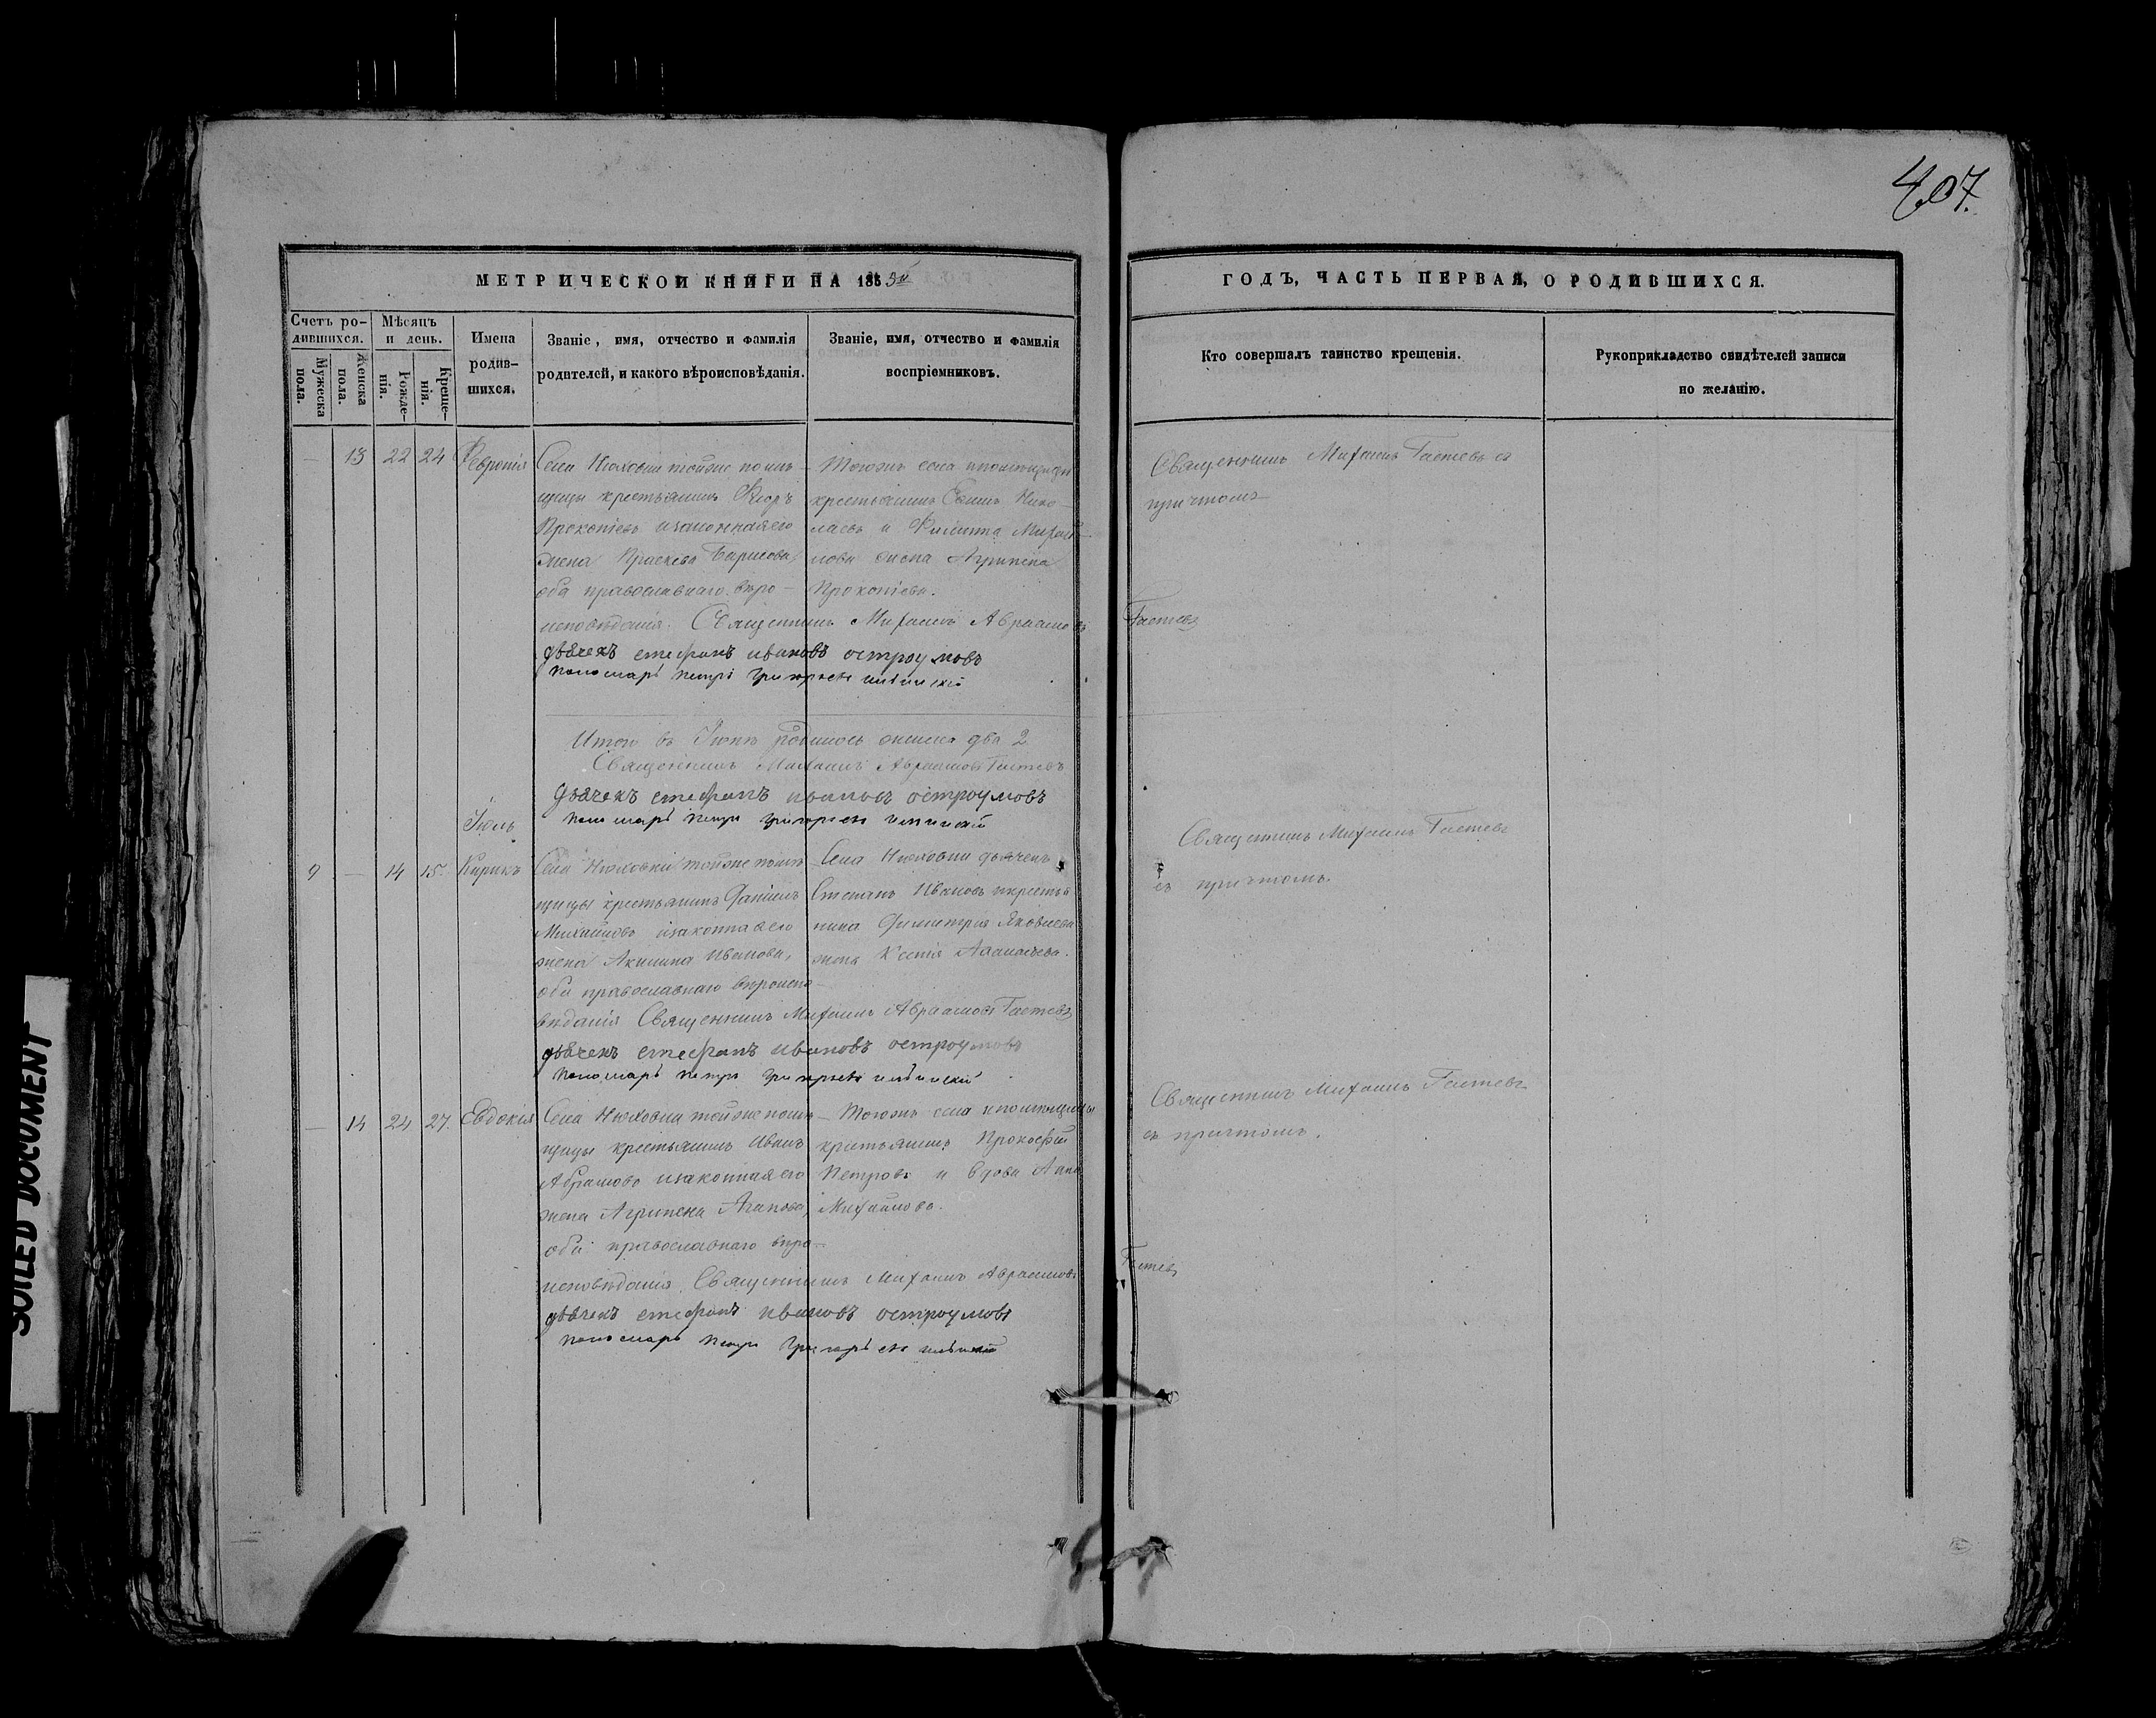 407.
МЕТРИЧЕСКОЙ КНИГИ НА 185
ГОДЪ, ЧАСТЬ ПЕРВАЯ, О РОДИВШИХСЯ.
Счетъ ро-
дившихся.
Мужеска
пола.
Женска
пола.
Мѣсяцъ
и день.
Рожде-
нія.
Креще-
нія.
Имена
родив-
шихся.
Званіе, имя, отчество и фамилія
родителей, и какого вѣроисповѣданія.
Званіе, имя, отчество и фамилія
воспріемниковъ.
Кто совершалъ таинство крещенія.
Рукоприкладство свидѣтелей записи
по желанію.
— 13 22 24 Февронія
Села Нюховки тойже помѣ-
щицы крестьянинъ
Прокопіевъ изаконная его
жена Праскева Борисова,
оба православнаго вѣро-
исповѣданія. Священникъ Михаилъ Авраамовъ
Гастевъ
дьячекъ стефанъ ивановъ остроумовъ
пономарь петръ григорьевъ
Тогожъ села ипомѣщицы
крестьянинъ Нико-
лаевъ и Филиппа Михай-
лова жена Агрипена
Прокопіева.
Священникъ Михаилъ Гастевъ съ
причтомъ
Итого въ Іюнѣ родилось женска два 2
Священникъ Михаилъ Авраамовъ Гастевъ
дьячекъ стефанъ ивановъ остроумовъ
пономарь петръ григорьевъ
Іюль
9 — 14 15. Кирикъ
Села Нюховки тойже помѣ-
щицы крестьянинъ Даніилъ
Михайловъ изаконная его
жена Акилина Иванова,
оба православнаго вѣроиспо-
вѣданія Священникъ Михаилъ Авраамовъ Гастевъ
дьячекъ стефанъ ивановъ остроумовъ
пономарь петръ григорьевъ
Села Нюховки дьячекъ
Стефанъ Ивановъ икрестья
нина Димитрія Яковлева
жена Ксенія Аѳанасьева.
Священникъ Михаилъ Гастевъ
съ причтомъ.
— 14 24 27. Евдокія
Села Нюховки тойже помѣ-
щицы крестьянинъ Иванъ
Абрамовъ изаконная его
жена Агрипена Агапова,
оба православнаго вѣро-
исповѣданія. Священникъ Михаилъ Авраамовъ
Гастевъ
дьячекъ стефанъ ивановъ остроумовъ
пономарь петръ григорьевъ
Тогожъ села ипомѣщицы
крестьянинъ Прокофій
Петровъ и вдова Анна
Михайлова.
Священникъ Михаилъ Гастевъ
съ причтомъ.
SOILED DOCUMENT